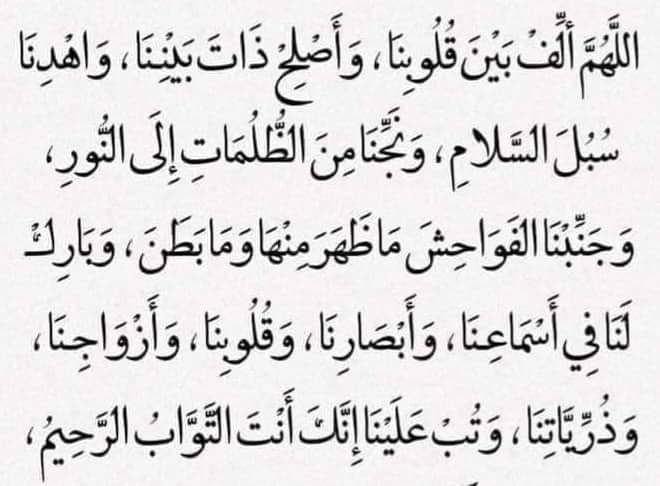 اللَّهُمَّ أَلِّفْ بَيْنَ قُلُوبِنَا، وَأَصْلِحْ ذَاتَ بَيْنِنَا، وَاهْدِنَا
سُبُلَ السَّلَامِ، وَنَجِّنَا مِنَ الظُّلُمَاتِ إِلَى النُّورِ،
وَجَنِّبْنَا الفَوَاحِشَ مَا ظَهَرَ مِنْهَا وَمَا بَطَنَ، وَبَارِكْ
لَنَا فِي أَسْمَاعِنَا، وَأَبْصَارِنَا، وَقُلُوبِنَا، وَأَزْوَاجِنَا،
وَذُرِّيَّاتِنَا، وَتُبْ عَلَيْنَا إِنَّكَ أَنْتَ التَّوَّابُ الرَّحِيمُ،